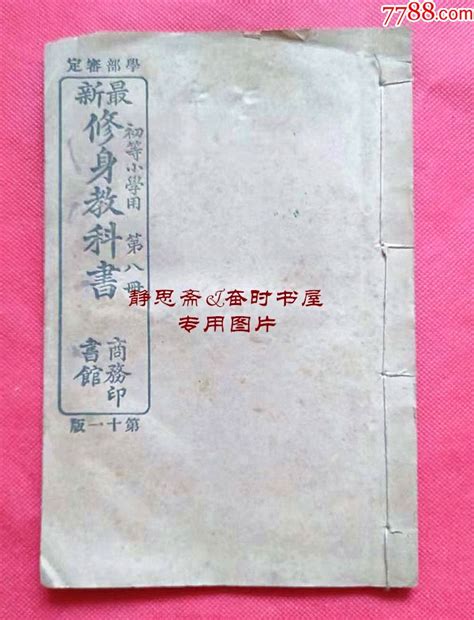 7788.com
學部審定
最新
修身教科書
初等小學用 第八冊
商務印
書館
第十一版
静思斋&奋时书屋
专用图片